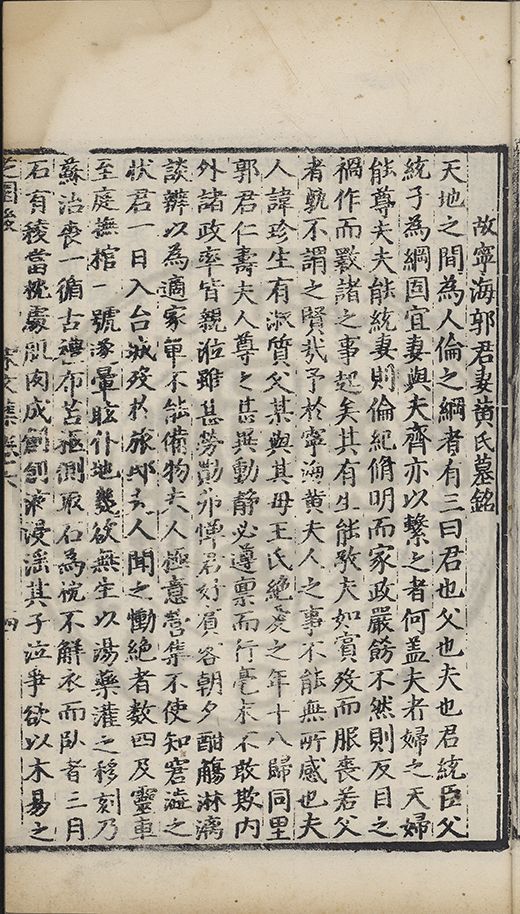 故寧海郭君妻黄氏墓銘
天地之間為人倫之綱者有三曰君也父也夫也君統臣父
統子為綱固宜妻與夫齊亦以繫之者何盖夫者婦之天婦
能尊夫夫能統妻則倫紀脩明而家政嚴飭不然則反目之
禍作而斁諸之事起矣其有生能敬夫如賓歿而服喪若父
者孰不謂之賢㢤予於寧海黄夫人之事不能無所感也夫
人諱珍生有淑質父某與其母王氏絶愛之年十八歸同里
郭君仁壽夫人尊之甚異動静必遵禀而行毫末不敢欺内
外諸政率皆親涖雖甚勞勩弗憚君好賓客朝夕酣觴淋漓
談辨以為適家單不能備物夫人極意營集不使知窘澁之
狀君一日入台城歿扵旅邸夫人聞之慟絶者数四及靈車
至庭撫棺一號遂暈眩仆地幾欲無生以湯藥灌之移刻乃
蘇治喪一循古禮布苫柩側取石為枕不解衣而臥者三月
石有稜當枕處肌肉成創創液浸淫其子泣爭欲以木易之